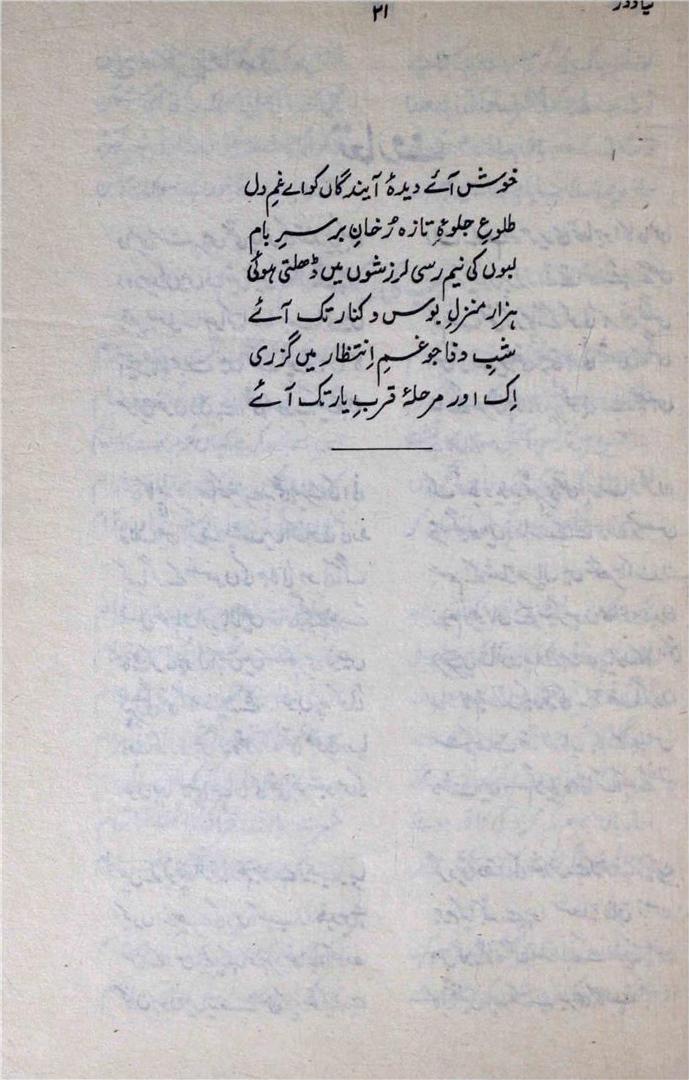 نیا دور
۲۱
خوش آئے دیدۂ آیندگاں کو اے غمِ دل
طلوعِ جلوۂ تازہ رُخانِ بر سرِ بام
لبوں کی نیم رسی لرزشوں میں ڈھلتی ہوئی
ہزار منزلِ بوس و کنار تک آئے
شبِ وفا جو غمِ اِنتظار میں گزری
اِک اور مرحلۂ قربِ یار تک آئے